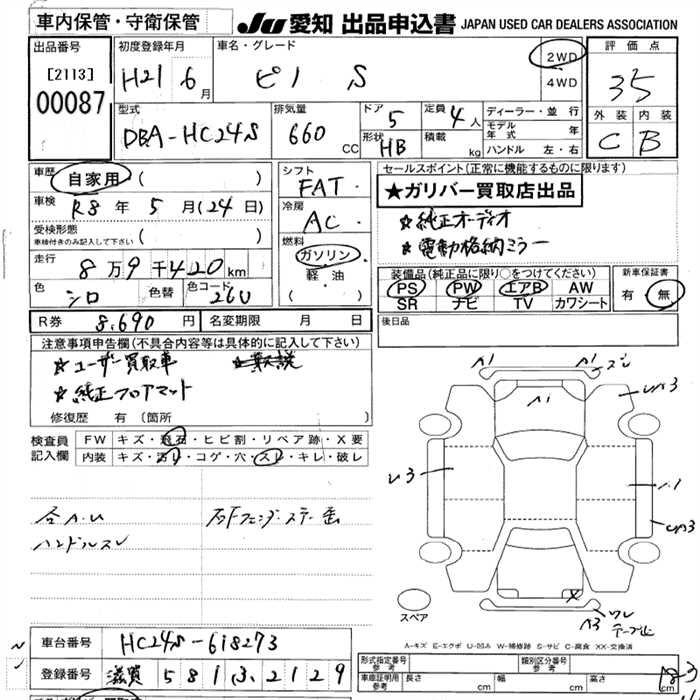 車内保管・守衛保管
JU 愛知 出品申込書 JAPAN USED CAR DEALERS ASSOCIATION
出品番号 初度登録年月 車名・グレード 2WD 4WD 評価点
[2113] 00087 H21 6月 ピノ S 35
型式 排気量 ドア 定員 ディーラー・並行 外装 内装
DBA-HC24S 660 CC 5 4人 モデル年式 年 C B
形状 HB 積載 kg ハンドル 左・右
車歴 自家用 ( ) シフト FAT セールスポイント(正常に機能するものに限ります)
★ガリバー買取店出品
車検 R8年 5月(24日) 冷房 AC ☆純正オーディオ
受検形態 車検付きのみ記入して下さい ( ) ☆電動格納ミラー
走行 8万9千420km 燃料 ガソリン 軽油 ( )
装備品(純正品に限り○をつけてください) 新車保証書
PS PW エアB AW 有 無
SR ナビ TV カワシート
色 シロ 色替 色コード 26U
R券 8,690円 名変期限 月 日 後日品
注意事項申告欄(不具合内容等は具体的に記入して下さい)
☆ユーザー買取車
☆純正フロアマット
修復歴 有 (箇所 )
検査員記入欄 FW キズ・飛石・ヒビ割・リペア跡・X要
内装 キズ・汚レ・コゲ・穴・スレ・キレ・破レ
ハンドルスレ
A1 A1 ズレ
A1
UA3
U3
A1
UA3
X
A3 ワレ テープ止
スペア
A-キズ E-エクボ U-凹み W-補修跡 S-サビ C-腐食 XX-交換済
車台番号 HC24S-618273
登録番号 滋賀 581 ひ 2129
形式指定番号 参考 類別区分番号 参考
車庫証明用 参考 長さ cm 幅 cm 高さ cm